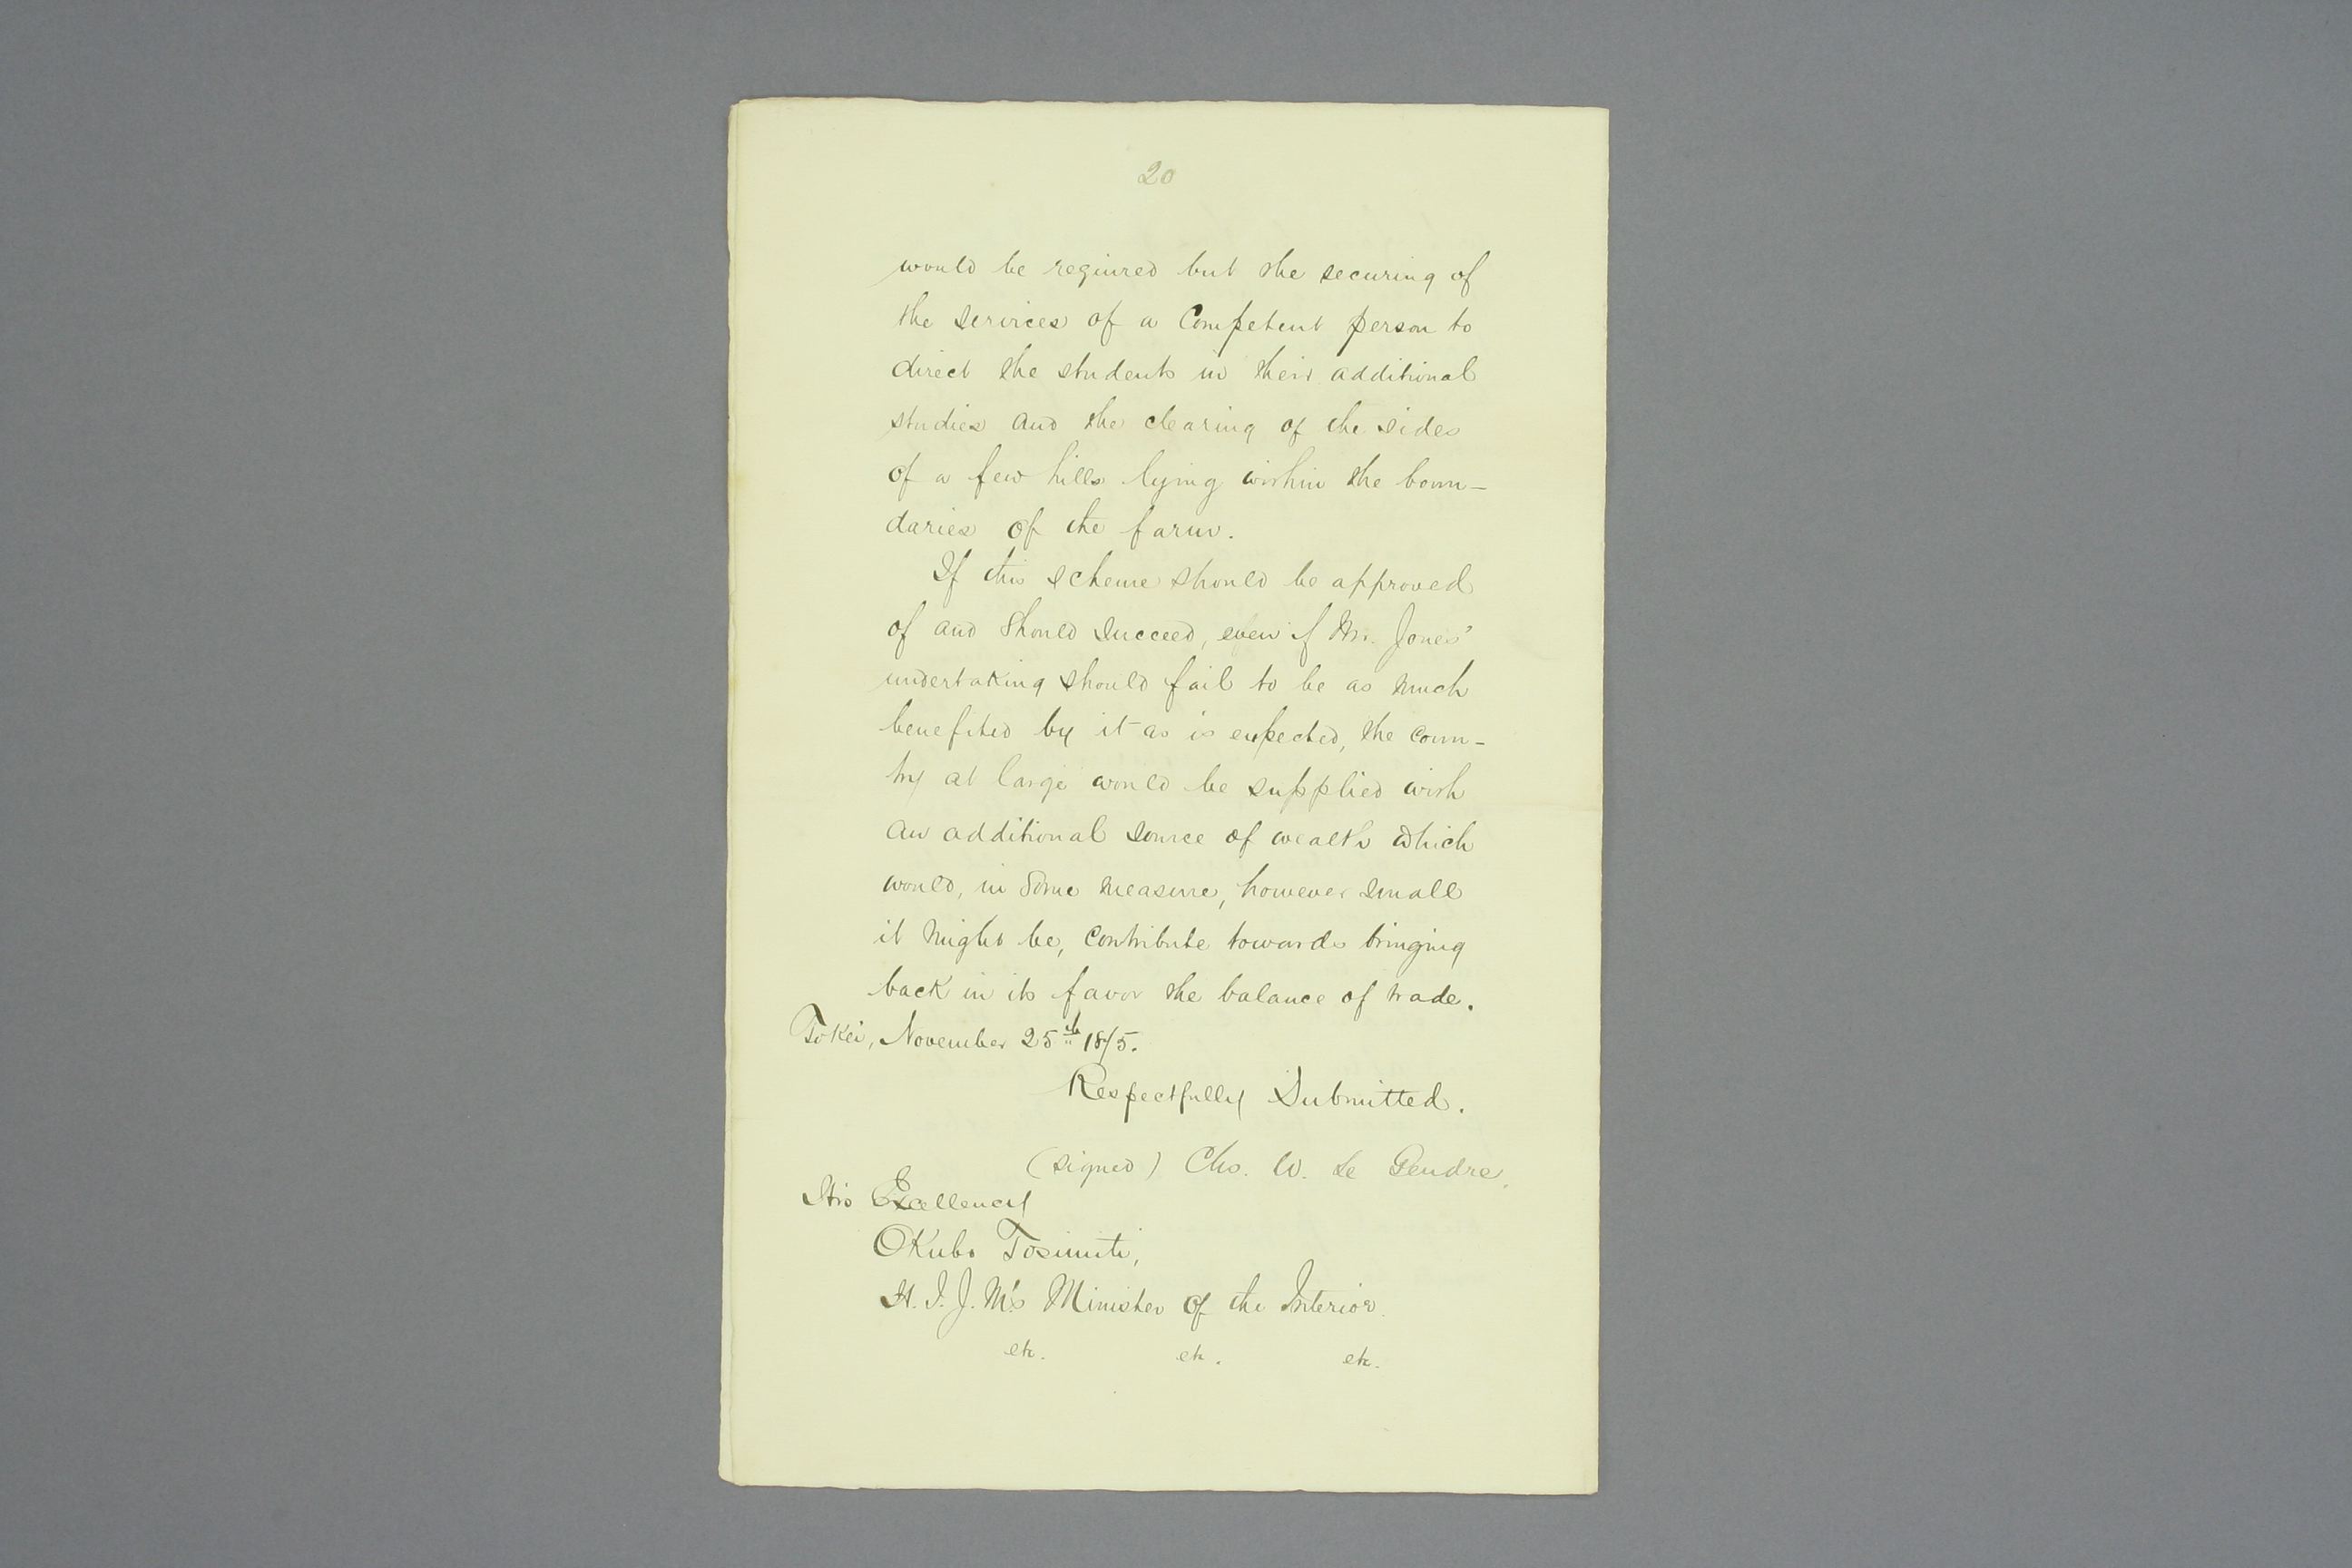 20
would be required but the securing of
the services of a Competent person to
direct the students in their additional
studies and the clearing of the sides
of a few hills lying within the boun-
daries of the farm.
If this scheme should be approved
of and should succeed, even if Mr. Jones'
undertaking should fail to be as much
benefited by it as is expected, the coun-
try at large would be supplied with
an additional source of wealth which
would, in some measure, however small
it might be, contribute towards bringing
back in its favor the balance of trade.
Tokei, November 25th 1875.
Respectfully Submitted.
(signed) Chs. W. Le Gendre.
His Excellency
Okubo Tosimiti,
H. I. J. M's Minister of the Interior.
etc. etc. etc.